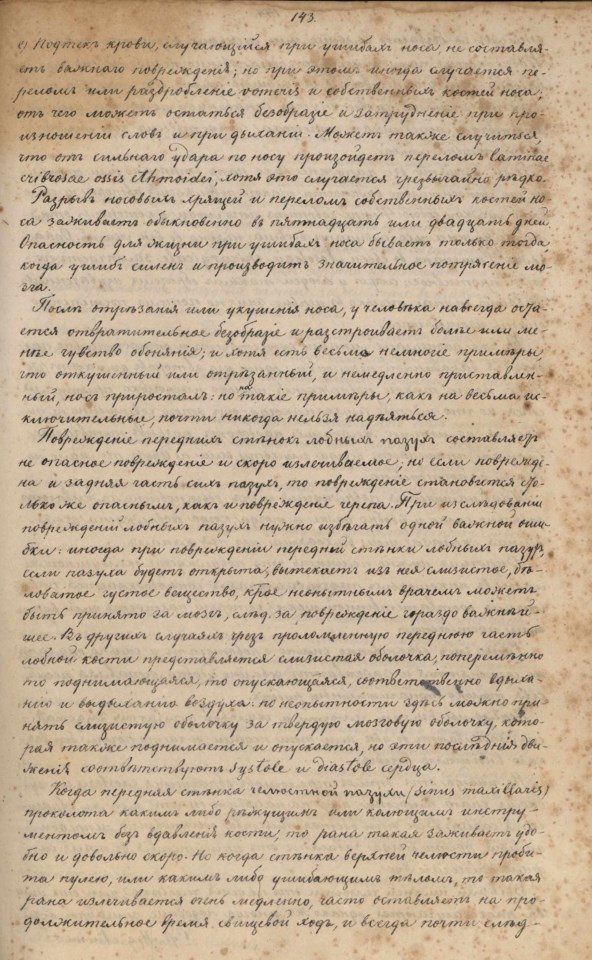 143.
с) Подтекъ крови, случающійся при ушибахъ носа, не составля-
етъ важнаго поврежденія; но при этомъ иногда случается пе-
реломъ или раздробленіе vomeris и собственныхъ костей носа,
отъ чего можетъ остаться безобразіе и затрудненіе при про-
изношеніи словъ и при дыханіи. Можетъ также случиться,
что отъ сильнаго удара по носу произойдетъ переломъ laminae
cribrosae ossis ethmoidei, хотя это случается чрезвычайно рѣдко.
Разрывъ носовыхъ хрящей и переломъ собственныхъ костей но-
са заживаетъ обыкновенно въ пятнадцать или двадцать дней.
Опасность для жизни при ушибахъ носа бываетъ только тогда,
когда ушибъ силенъ и производитъ значительное потрясеніе мо-
зга.
Послѣ отрѣзанія или укушенія носа, у человѣка навсегда оста-
ется отвратительное безобразіе и разстроиваетъ болѣе или ме-
нѣе чувство обонянія; и хотя есть весьма немногіе примѣры,
что откушенный или отрѣзанный, и немедленно приставлен-
ный, носъ приросталъ: но на такіе примѣры, какъ на весьма ис-
ключительные, почти никогда нельзя надѣяться.
Поврежденіе переднихъ стѣнокъ лобныхъ пазухъ составляетъ
не опасное поврежденіе и скоро излечиваемое; но если поврежде-
на и задняя часть сихъ пазухъ, то поврежденіе становится сто-
лько же опаснымъ, какъ и поврежденіе черепа. При изслѣдованіи
поврежденій лобныхъ пазухъ нужно избѣгать одной важной оши-
бки: иногда при поврежденіи передней стѣнки лобныхъ пазухъ,
если пазуха будетъ открыта, вытекаетъ изъ нея слизистое, бѣ-
ловатое густое вещество, крое неопытнымъ врачемъ можетъ
быть принято за мозгъ, слѣд. за поврежденіе гораздо важнѣй-
шее. Въ другихъ случаяхъ чрезъ проломленную переднюю часть
лобной кости представляется слизистая оболочка, поперемѣнно
то поднимающаяся, то опускающаяся, соотвѣтственно вдыха-
нію и выдыханію воздуха: по неопытности здѣсь можно при-
нять слизистую оболочку за твердую мозговую оболочку, кото-
рая также поднимается и опускается, но эти послѣднія дви-
женія соотвѣтствуютъ systole и diastole сердца.
Когда передняя стѣнка челюстной пазухи (sinus maxillaris)
проколота какимъ либо рѣжущимъ или колющимъ инстру-
ментомъ безъ вдавленія кости, то рана такая заживаетъ удо-
бно и довольно скоро. Но когда стѣнка верхней челюсти проби-
та пулею, или какимъ либо ушибающимъ тѣломъ, то такая
рана излечивается очень медленно, часто оставляетъ на про-
должительное время свищевой ходъ, и всегда почти слѣд-